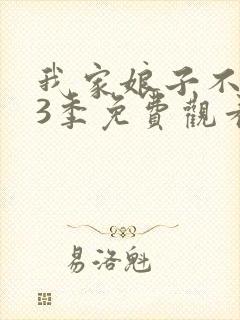 我家娘子不
3季免費觀看
易洛魁